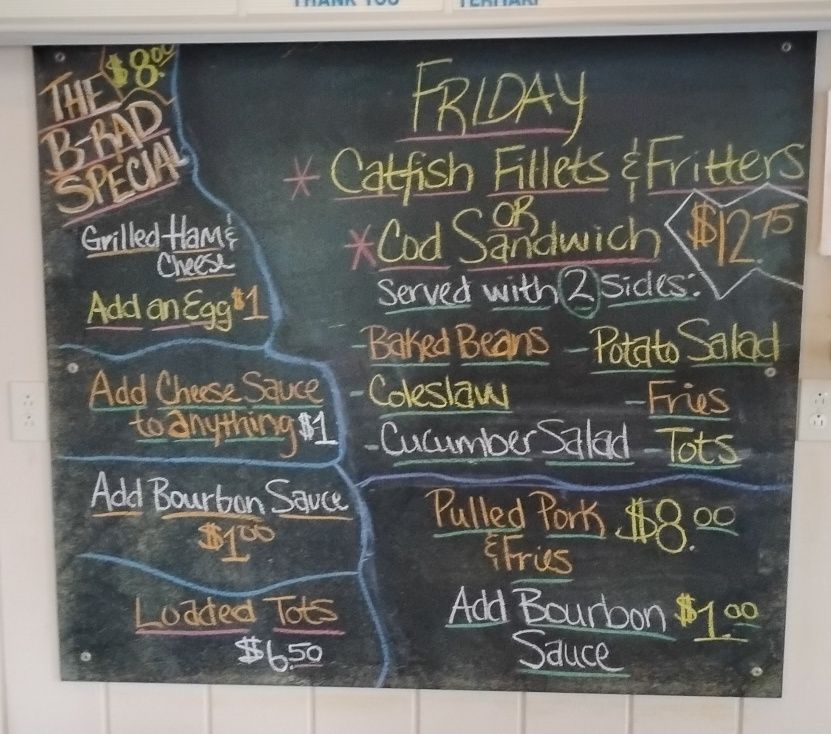 THANK YOU
$8.00
THE
B-RAD
SPECIAL
Grilled Ham &
Cheese
Add an Egg $1
Add Cheese Sauce
to anything $1
Add Bourbon Sauce
$1.00
Loaded Tots
$6.50
FRIDAY
* Catfish Fillets & Fritters
OR
* Cod Sandwich $12.75
Served with 2 Sides:
- Baked Beans - Potato Salad
- Coleslaw - Fries
- Cucumber Salad - Tots
Pulled Pork $8.00
& Fries
Add Bourbon $1.00
Sauce